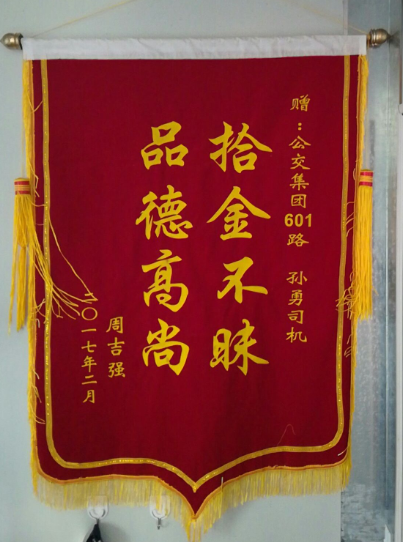 赠：公交集团601路 孙勇司机
拾金不昧
品德高尚
周吉强
二〇一七年二月